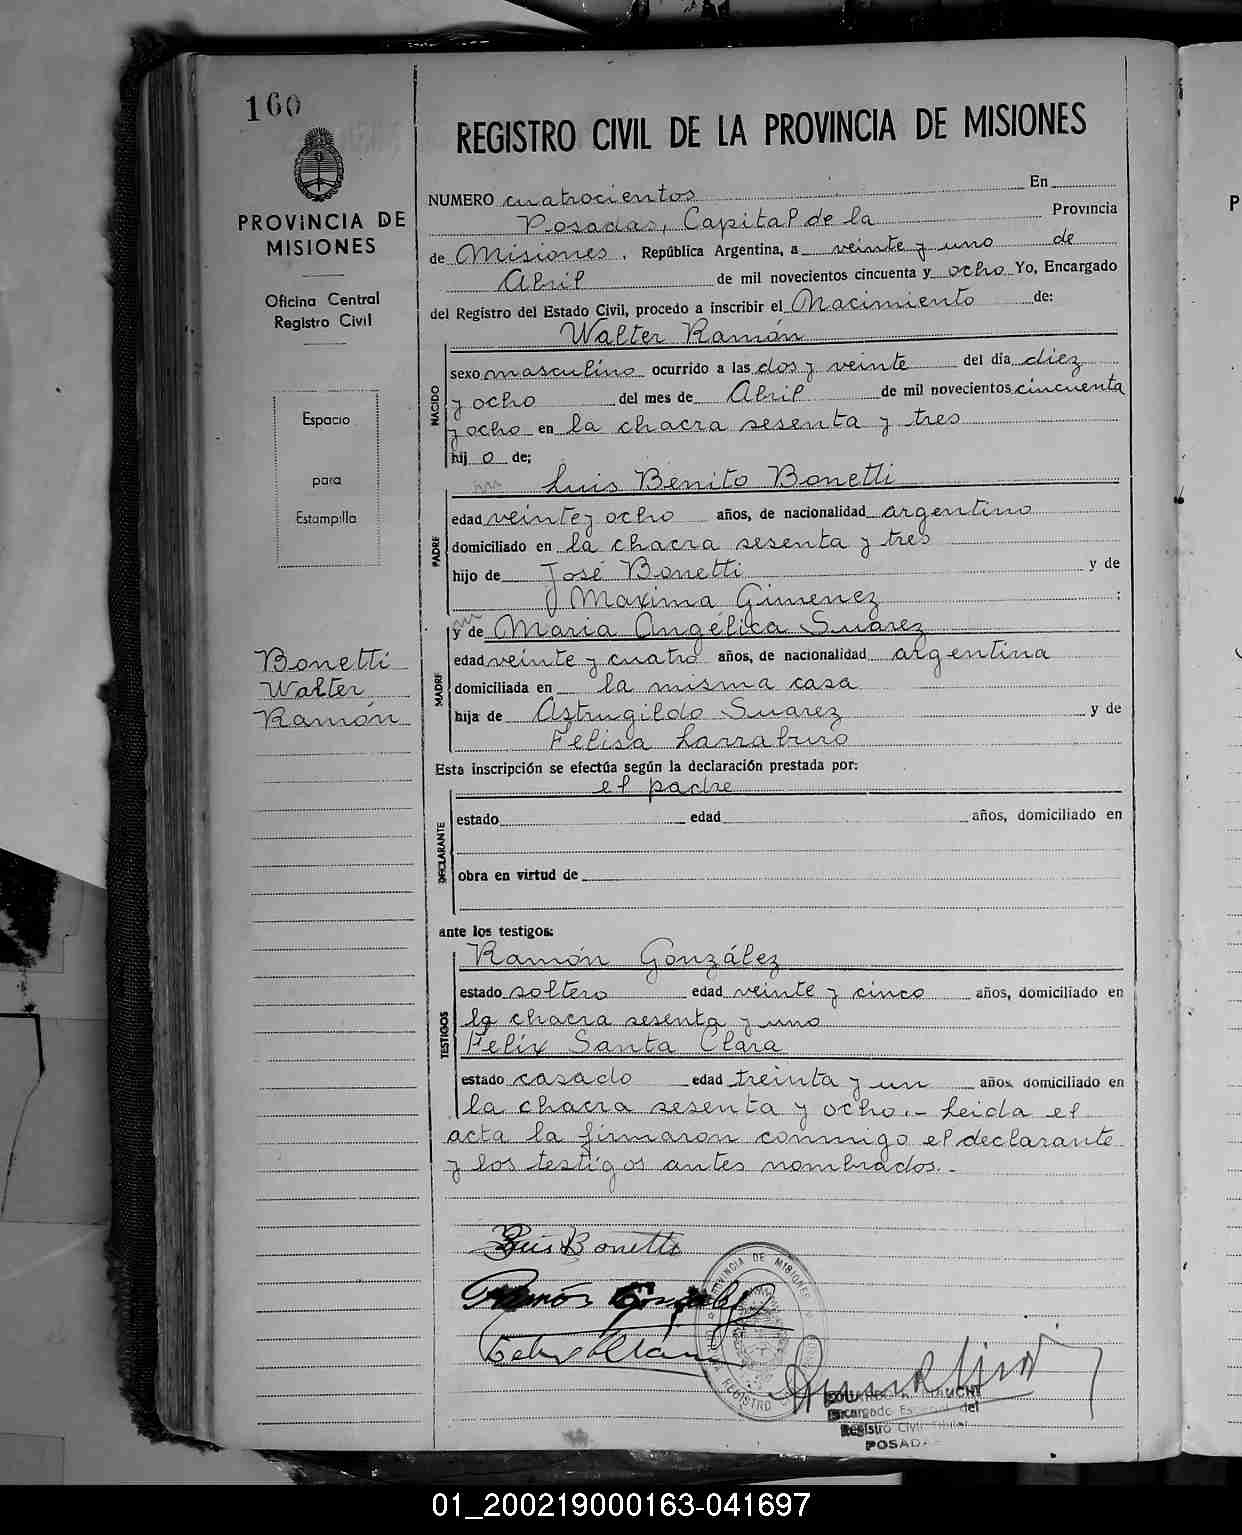 160
PROVINCIA DE
MISIONES
Oficina Central
Registro Civil
Espacio
para
Estampilla
Bonetti
Walter
Ramón
REGISTRO CIVIL DE LA PROVINCIA DE MISIONES
NUMERO cuatrocientos En
Posadas, Capital de la Provincia
de Misiones, República Argentina, a veinte y uno de
Abril de mil novecientos cincuenta y ocho Yo, Encargado
del Registro del Estado Civil, procedo a inscribir el Nacimiento de:
Walter Ramón
NACIDO
sexo masculino ocurrido a las dos y veinte del día diez
y ocho del mes de Abril de mil novecientos cincuenta
y ocho en la chacra sesenta y tres
hij o de;
Luis Benito Bonetti
PADRE
edad veinte y ocho años, de nacionalidad argentino
domiciliado en la chacra sesenta y tres
hijo de José Bonetti y de
Maxima Gimenez :
y de Maria Angélica Suarez
MADRE
edad veinte y cuatro años, de nacionalidad argentina
domiciliada en la misma casa
hija de Astrugildo Suarez y de
Felisa Larraburo
Esta inscripción se efectúa según la declaración prestada por:
el padre
DECLARANTE
estado edad años, domiciliado en
obra en virtud de
ante los testigos:
Ramón González
TESTIGOS
estado soltero edad veinte y cinco años, domiciliado en
la chacra sesenta y uno
Felix Santa Clara
estado casado edad treinta y un años domiciliado en
la chacra sesenta y ocho.- Leida el
acta la firmaron conmigo el declarante
y los testigos antes nombrados.-
Luis Bonetti
Ramón Gonzalez
PROVINCIA DE MISIONES
REGISTRO
Encargado Especial del
Registro Civil
POSADAS
01_200219000163-041697